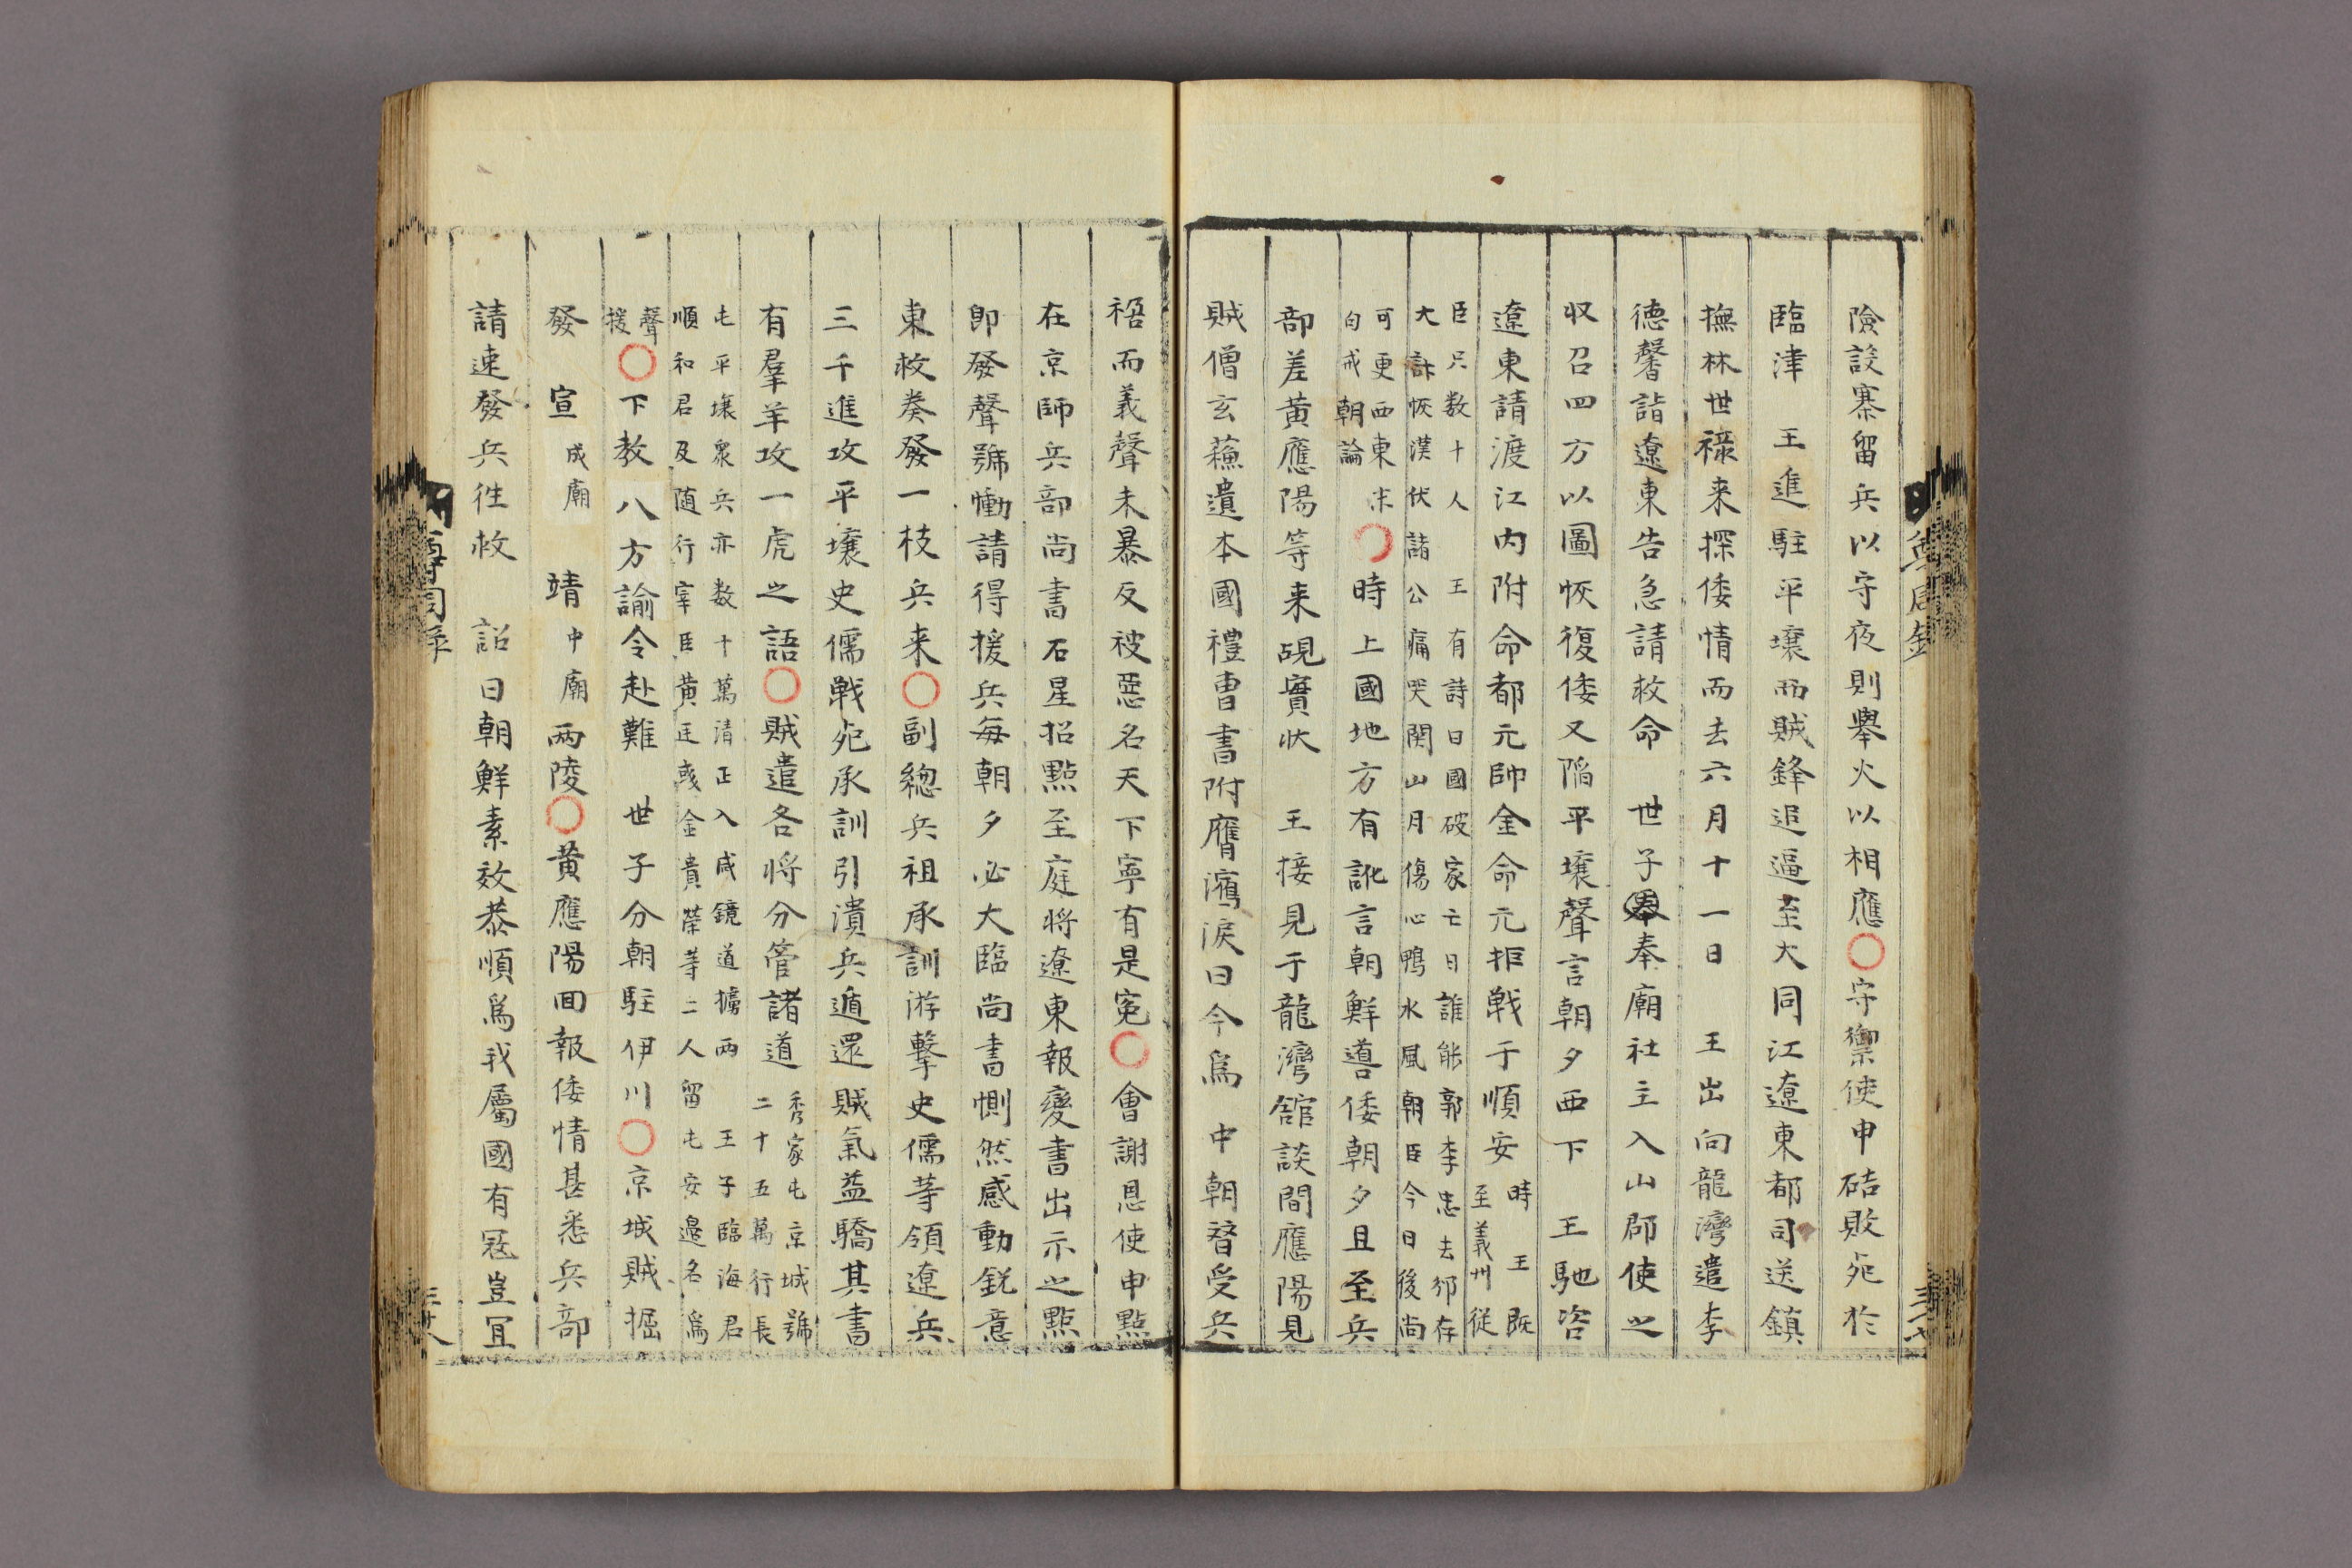 險設寨留兵以守夜則擧火以相應○守禦使申硈敗死於
臨津 王進駐平壤而賊鋒追逼至大同江遼東都司送鎮
撫林世祿来探倭情而去六月十一日 王出向龍灣遣李
德馨詣遼東告急請救命 世子奉廟社主入山郡使之
収召四方以圖恢復倭又陷平壤聲言朝夕西下 王馳咨
遼東請渡江内附命都元帥金命元拒戦于順安
時 王既
至義州従
臣只数十人 王有詩曰國破家亡日誰能郭李忠去邠存
大計恢漢伏諸公痛哭関山月傷心鴨水風朝臣今日後尚
可更西東宋
白戒朝論
○時上國地方有訛言朝鮮導倭朝夕且至兵
部差黄應陽等来覘實状 王接見于龍灣舘談間應陽見
賊僧玄蘓遺本國禮曹書附膺濱淚曰今爲 中朝替受兵
禍而義聲未暴反被惡名天下寧有是寃○會謝恩使申點
在京師兵部尚書石星招點至庭将遼東報變書出示之點
即發聲號慟請得援兵每朝夕必大臨尚書惻然感動鋭意
東救奏發一枝兵来○副總兵祖承訓游擊史儒等領遼兵
三千進攻平壤史儒戦死承訓引潰兵遁還賊氣益驕其書
有羣羊攻一虎之語○賊遣各将分管諸道
秀家屯京城號
二十五萬行長
屯平壤衆兵亦数十萬清正入咸鏡道擄兩 王子臨海君
順和君及随行宰臣黄廷彧金貴榮等二人留屯安邊名爲
聲
援
○下教八方諭令赴難 世子分朝駐伊川○京城賊掘
發 宣成廟 靖中廟兩陵○黄應陽回報倭情甚悉兵部
請速發兵徃救 詔曰朝鮮素效恭順爲我屬國有冦豈冝